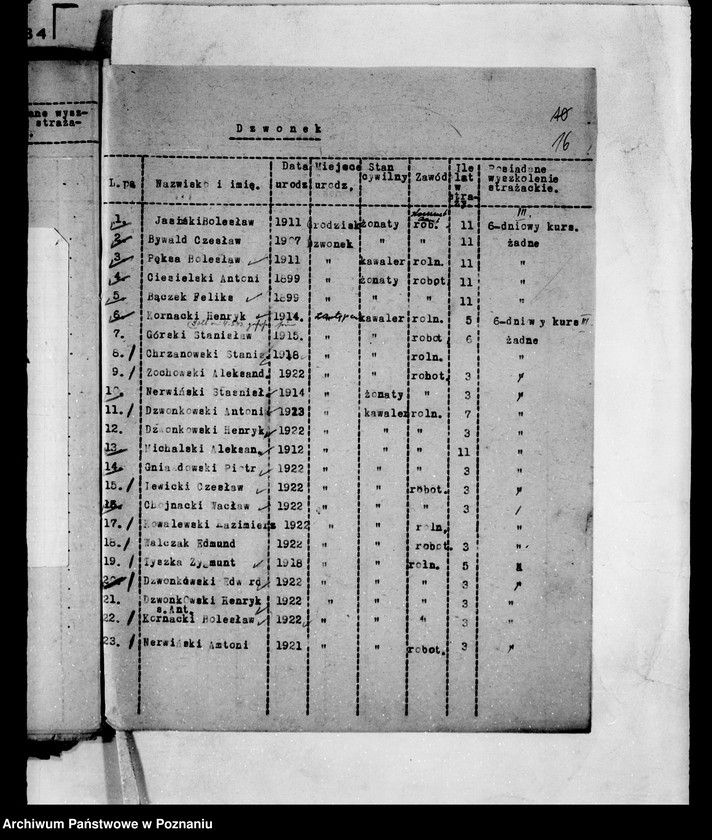 34
ane wysz-
straża-
D z w o n e k
10
16
L.pa Nazwisko i imię. Data urodz. Miejsce urodz, Stan cywilny Zawód Ile lat w straży. Posiadane wyszkolenie strażackie.
1. Jasiński Bolesław 1911 Grodzisk żonaty rob. 11 6-dniowy kurs. III.
2. Bywald Czesław 1907 Dzwonek " " 11 żadne
3. Pęksa Bolesław 1911 " kawaler roln. 11 "
4. Ciesielski Antoni 1899 " żonaty robot. 11 "
5. Bączek Feliks 1899 " " " 11 "
6. Kornacki Henryk 1914. kawaler roln. 5 6-dniwy kurs III
7. Górski Stanisław 1915. " " robot. 6 żadne
8. Chrzanowski Stanis. 1918 " " roln. "
9. Żochowski Aleksand. 1922 " " robot. 3 "
10. Nerwiński Stanisł. 1914 " żonaty " 3 "
11. Dzwonkowski Antoni 1923 " kawaler roln. 7 "
12. Dzwonkowski Henryk, 1922 " " " 3 "
13. Michalski Aleksan. 1912 " " " 11 "
14. Gniazdowski Piotr 1922 " " " 3 "
15. Lewicki Czesław 1922 " " robot. 3 "
16. Chojnacki Wacław 1922 " " " 3 "
17. Kowalewski Kazimierz 1922 " " roln. "
18. Walczak Edmund 1922 " " robot. 3 "
19. Tyszka Zygmunt 1918 " " roln. 5 "
20. Dzwonkowski Edward 1922 " " " 3 "
21. Dzwonkowski Henryk 1922 " " " 3 "
s.Ant.
22. Kornacki Bolesław 1922 " " " 3 "
23. Nerwiński Antoni 1921 " " robot. 3 "
Archiwum Państwowe w Poznaniu